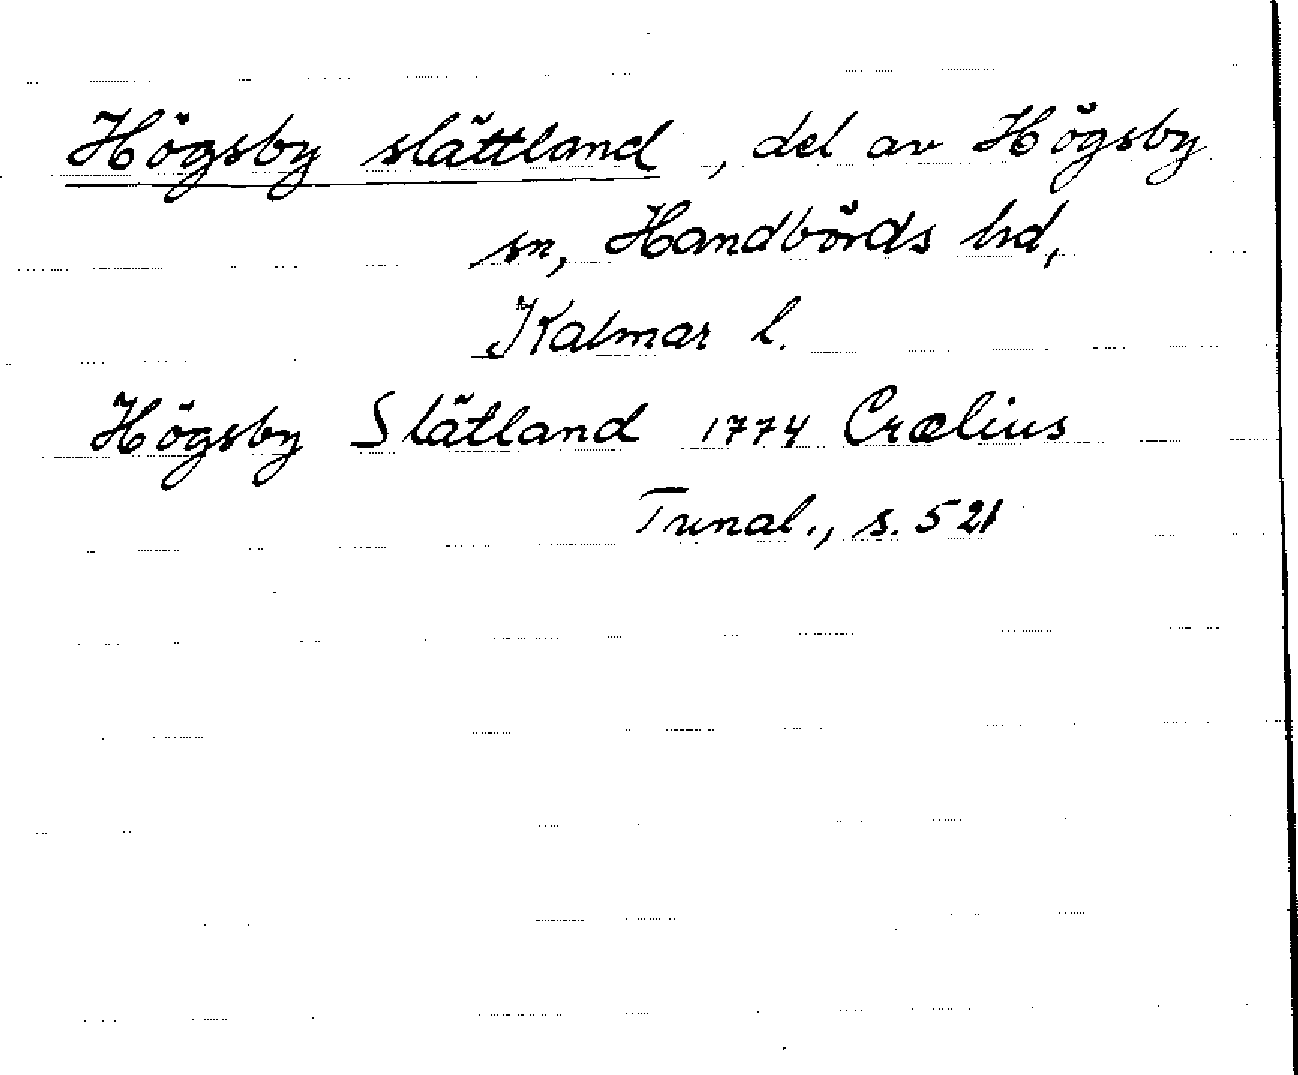 Högsby slättland, del av Högsby
sn, Handbörds hd,
Kalmar l.
Högsby Slätland 1774 Crælius
Tunal., s. 521